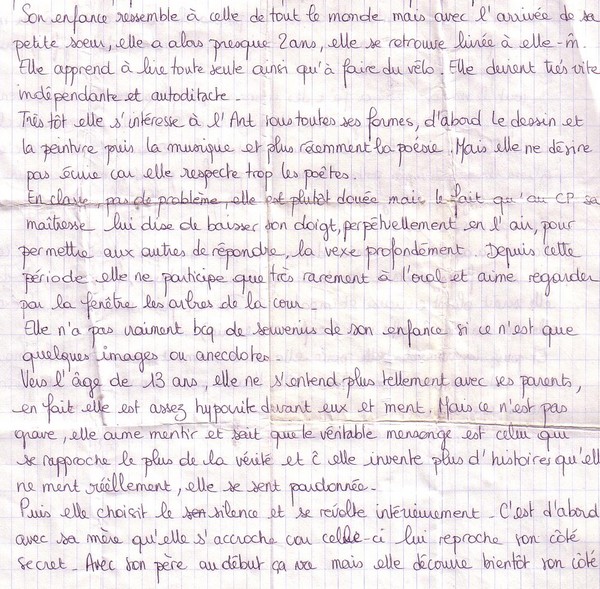 Son enfance ressemble à celle de tout le monde mais avec l'arrivée de sa
petite soeur, elle a alors presque 2 ans, elle se retrouve livrée à elle-m̂.
Elle apprend à lire toute seule ainsi qu'à faire du vélo. Elle devient très vite
indépendante et autodidacte.
Très tôt elle s'intéresse à l'Art sous toutes ses formes, d'abord le dessin et
la peinture puis la musique et plus récemment la poésie. Mais elle ne désire
pas écrire car elle respecte trop les poètes.
En classe, pas de problème, elle est plutôt douée mais le fait qu'au CP sa
maîtresse lui dise de baisser son doigt, perpétuellement en l'air, pour
permettre aux autres de répondre, la vexe profondément. Depuis cette
période elle ne participe que très rarement à l'oral et aime regarder
par la fenêtre les arbres de la cour.
Elle n'a pas vraiment bcq de souvenirs de son enfance si ce n'est que
quelques images ou anecdotes.
Vers l'âge de 13 ans, elle ne s'entend plus tellement avec ses parents,
en fait elle est assez hypocrite devant eux et ment. Mais ce n'est pas
grave, elle aime mentir et sait que le véritable mensonge est celui qui
se rapproche le plus de la vérité et c elle invente plus d'histoires qu'elle
ne ment réellement, elle se sent pardonnée.
Puis elle choisit le son silence et se révolte intérieurement. C'est d'abord
avec sa mère qu'elle s'accroche car celle-ci lui reproche son côté
secret. Avec son père au début ça va mais elle découvre bientôt son côté